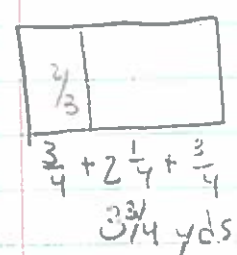 2/3
3/4 + 2 1/4 + 3/4
3 3/4 yds